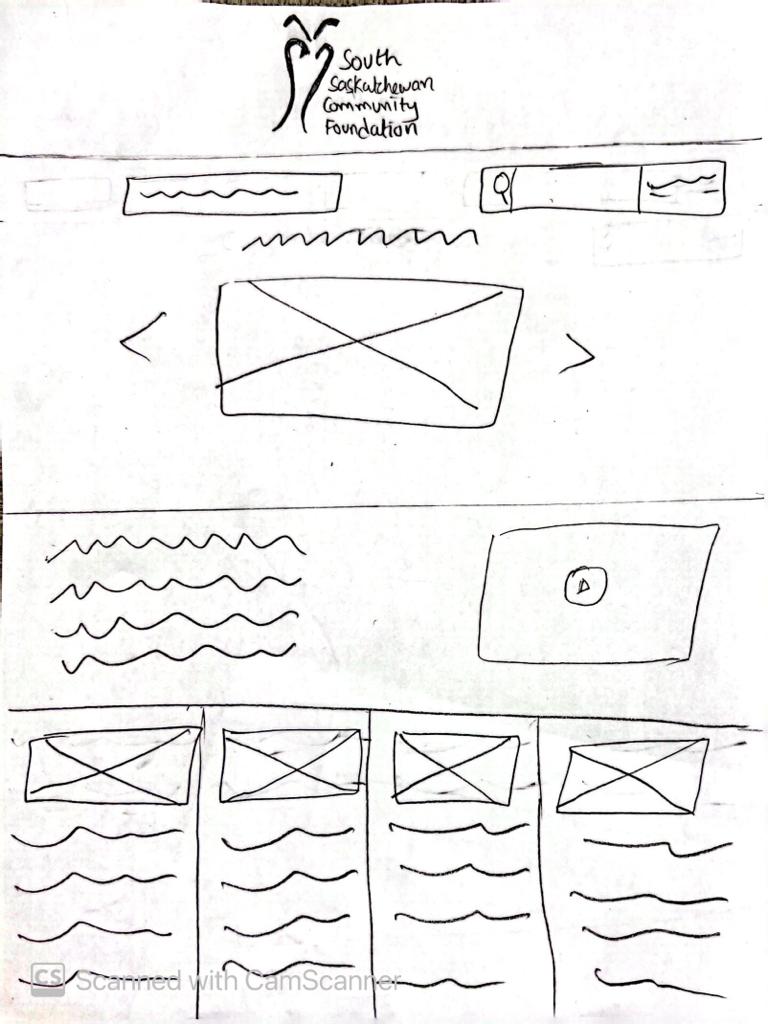 South
Saskatchewan
Community
Foundation
CS Scanned with CamScanner